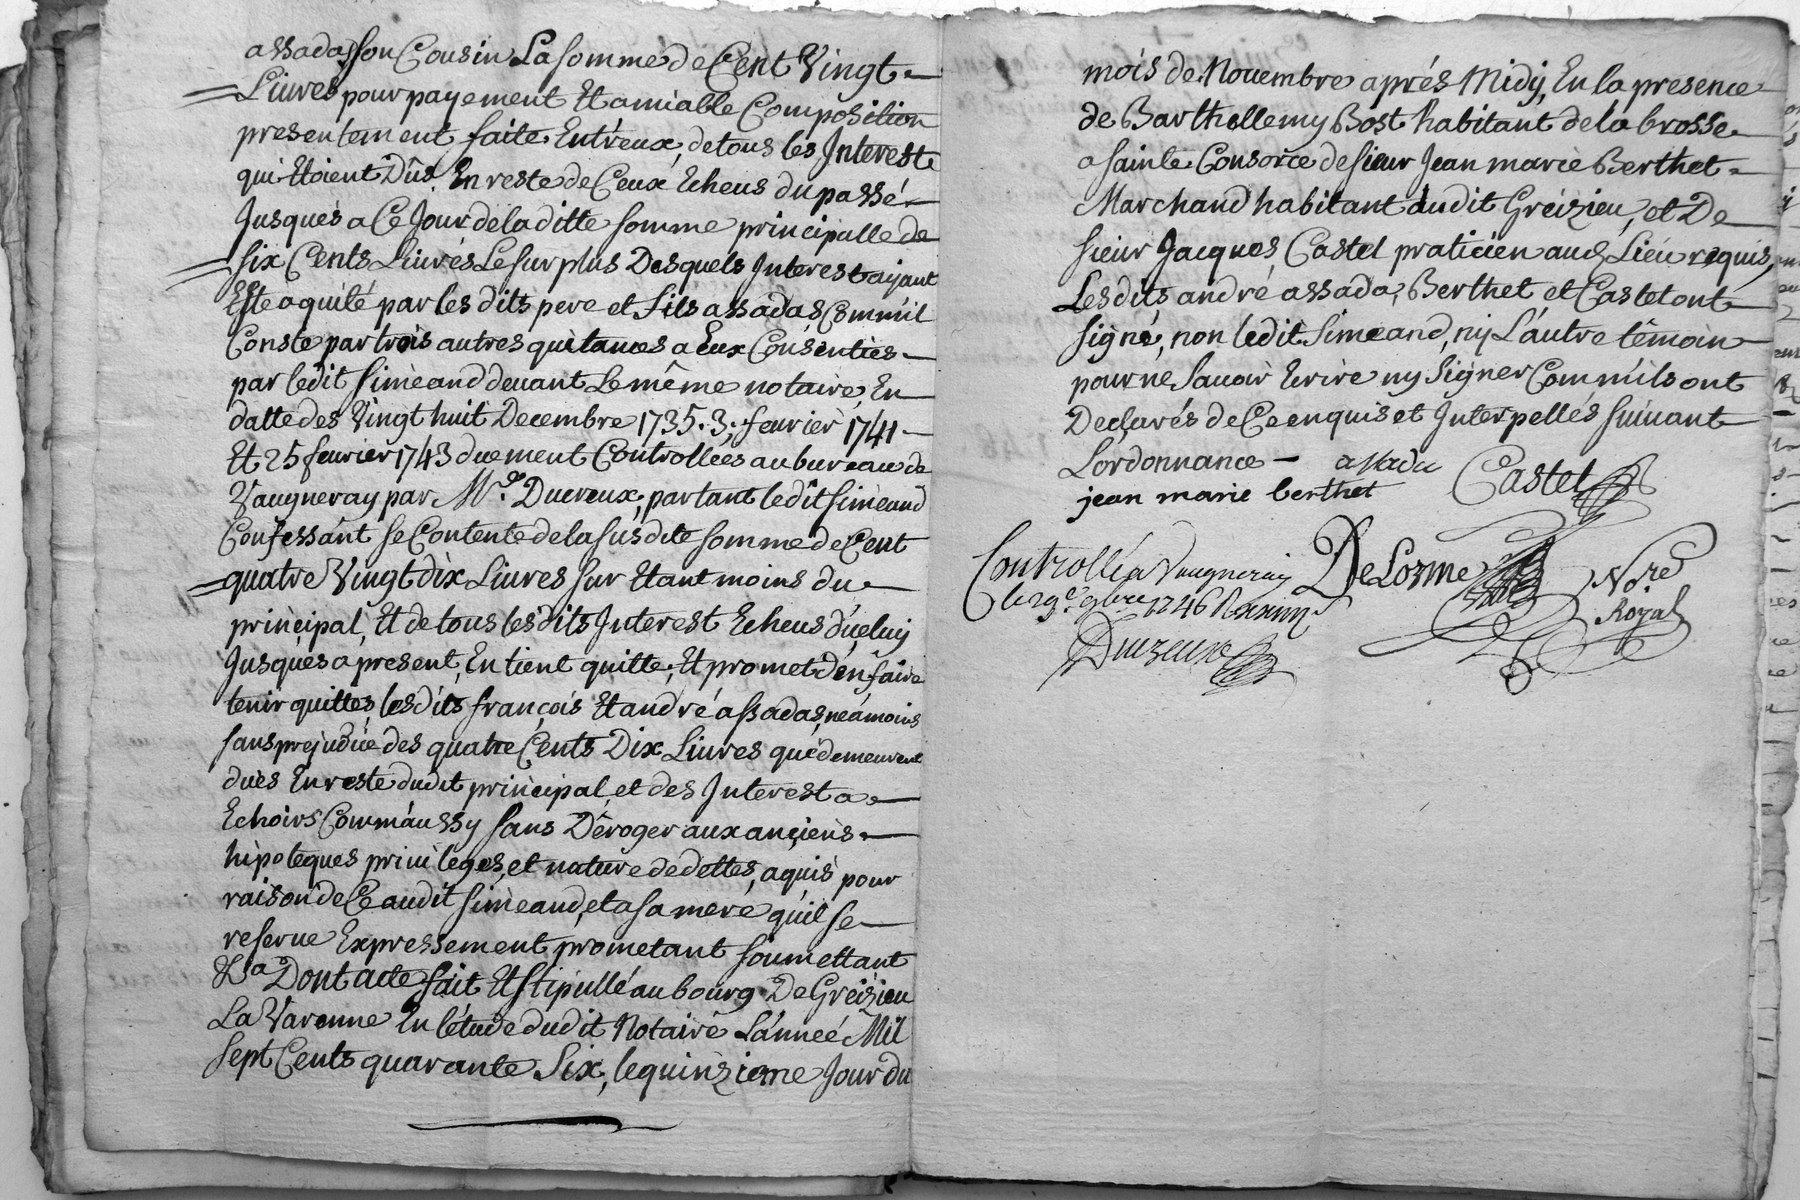 assadas son Cousin La somme de Cent Vingt
Livres pour payement Et amiable Composition
presentement faite Entreux, de tous les Interest
qui Etoient Dûs En reste de Ceux Echeus du passé
Jusques a Ce Jour de la ditte somme principalle de
six Cents Livres Le surplus Desquels Interest ayant
Este aquité par les dits pere et fils assadas Comm'il
Conste par trois autres quitances a Eux Consenties
par ledit Siméand devant Le même notaire En
datte des Vingt huit Decembre 1735. 3. fevrier 1741
Et 25 fevrier 1743 duement Controllées au bureau de
Vaugneray par Mr. Ducreux, partant ledit Siméand
Confessant se Contente de la susdite somme de Cent
quatre Vingt dix Livres sur Etant moins du
principal, Et de tous les dits Interest Echeus d'iceluy
Jusques a present, En tient quitte, Et promet d'en faire
tenir quittes les dits françois Et andré assadas, neámoins
sans prejudice des quatre Cents Dix Livres qui demeurent
dues En reste dudit principal, et des Interest a
Echoirs Comm'aussy sans Déroger aux anciens
hipoteques privileges, et nature de dettes, aquis pour
raison de Ce audit Siméand, et a sa mere qu'il se
reserve Expressement, prometant soumettant
&a Dont acte fait Et stipullé au bourg De Greizieu
La Varenne En l'étude dudit Notaire L'année Mil
sept Cents quarante Six, le quinzieme Jour du
mois de Novembre aprés Midy, En la presence
de Barthellemy Bost habitant de la brosse
a sainte Consorce de sieur Jean marie Berthet
Marchand habitant dudit Greizieu, et De
sieur Jacques Castel praticien aud Lieu requis,
Lesdits andré assada, Berthet et Castel ont
signé, non ledit Simeand, ny L'autre témoin
pour ne Savoir Ecrire ny Signer Comm'ils ont
Declarés de Ce enquis et Interpellés suivant
Lordonnance assada Castel
jean marie berthet
Controllé a Vaugneray DeLorme Nre
le 29e 9bre 1746 Royal
Ducreux